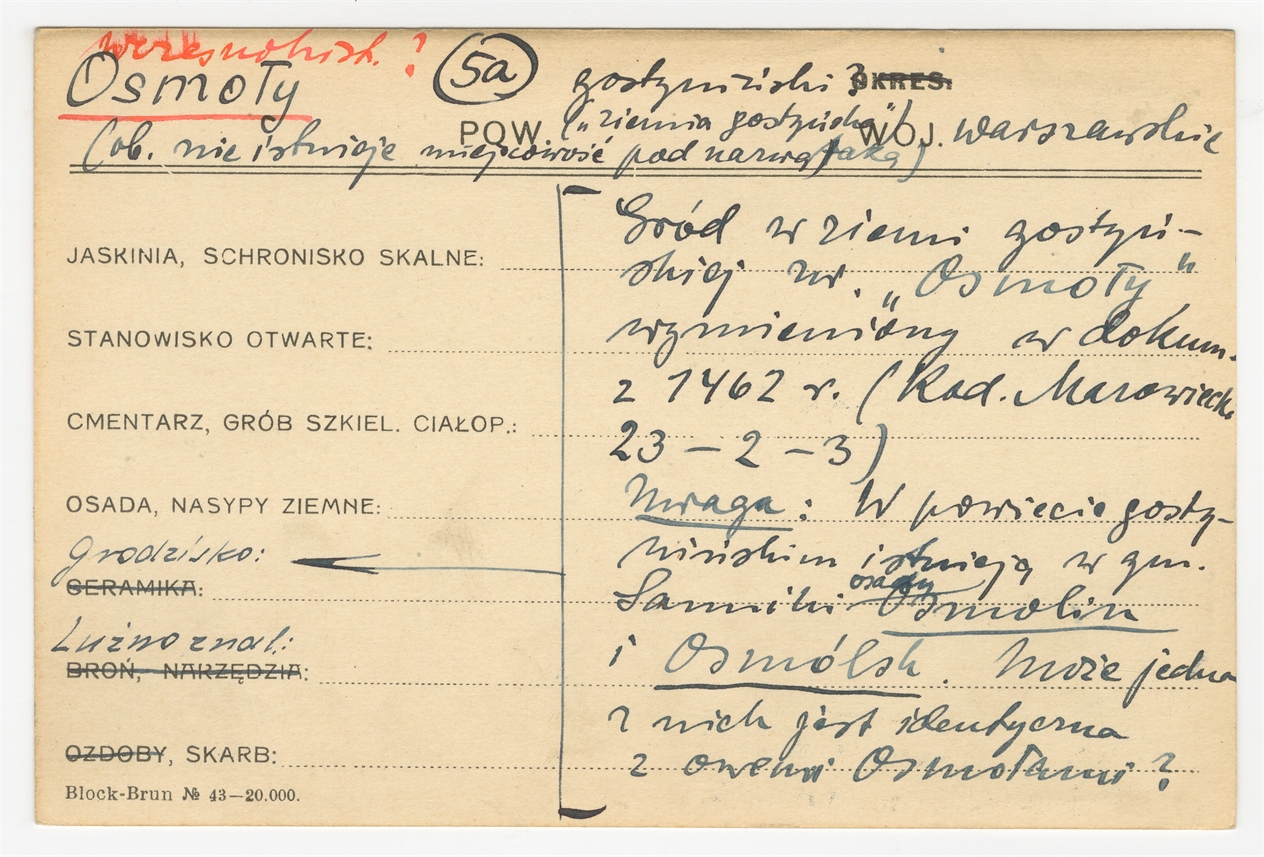 wczesnohist.?
Osmoły 5a gostyniński? OKRES.
POW. („ziemia gostyńska") WOJ. warszawskie
(ob. nie istnieje miejscowość pod nazwą taką)
Gród w ziemi gostyń-
JASKINIA, SCHRONISKO SKALNE:
skiej zw. „Osmoły"
STANOWISKO OTWARTE:
wymieniony w dokum.
z 1462 r. (Kod. Mazowiecki
CMENTARZ, GRÓB SZKIEL. CIAŁOP.:
23 – 2 – 3)
OSADA, NASYPY ZIEMNE:
Uwaga: W powiecie gosty-
Grodzisko:
nińskim istnieją w gm.
CERAMIKA:
Sanniki osady Osmolin
Luźno znal.:
BROŃ, NARZĘDZIA:
i Osmólsk. Może jedna
z nich jest identyczna
OZDOBY, SKARB:
z owemi Osmołami?
Block-Brun № 43—20.000.